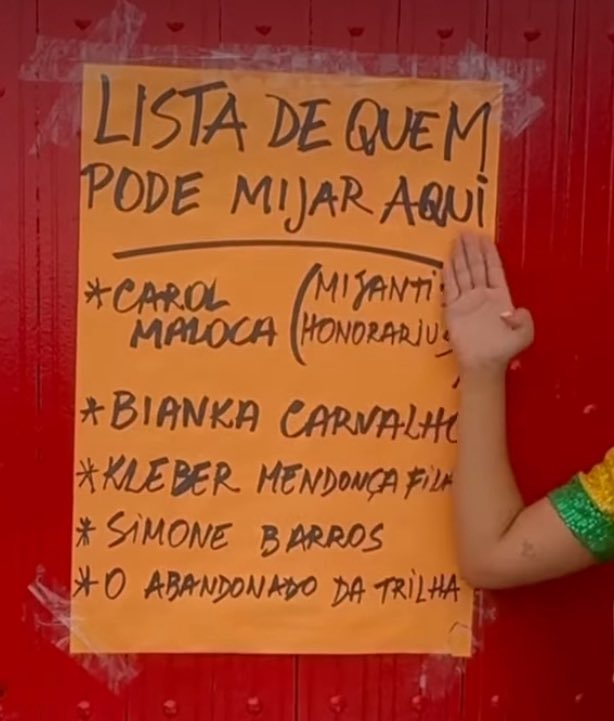 LISTA DE QUEM
PODE MIJAR AQUI
*CAROL (MIJANTI
MALOCA HONORARIU
*BIANKA CARVALHO
*KLEBER MENDONÇA FILH
*SIMONE BARROS
*O ABANDONADO DA TRILHA